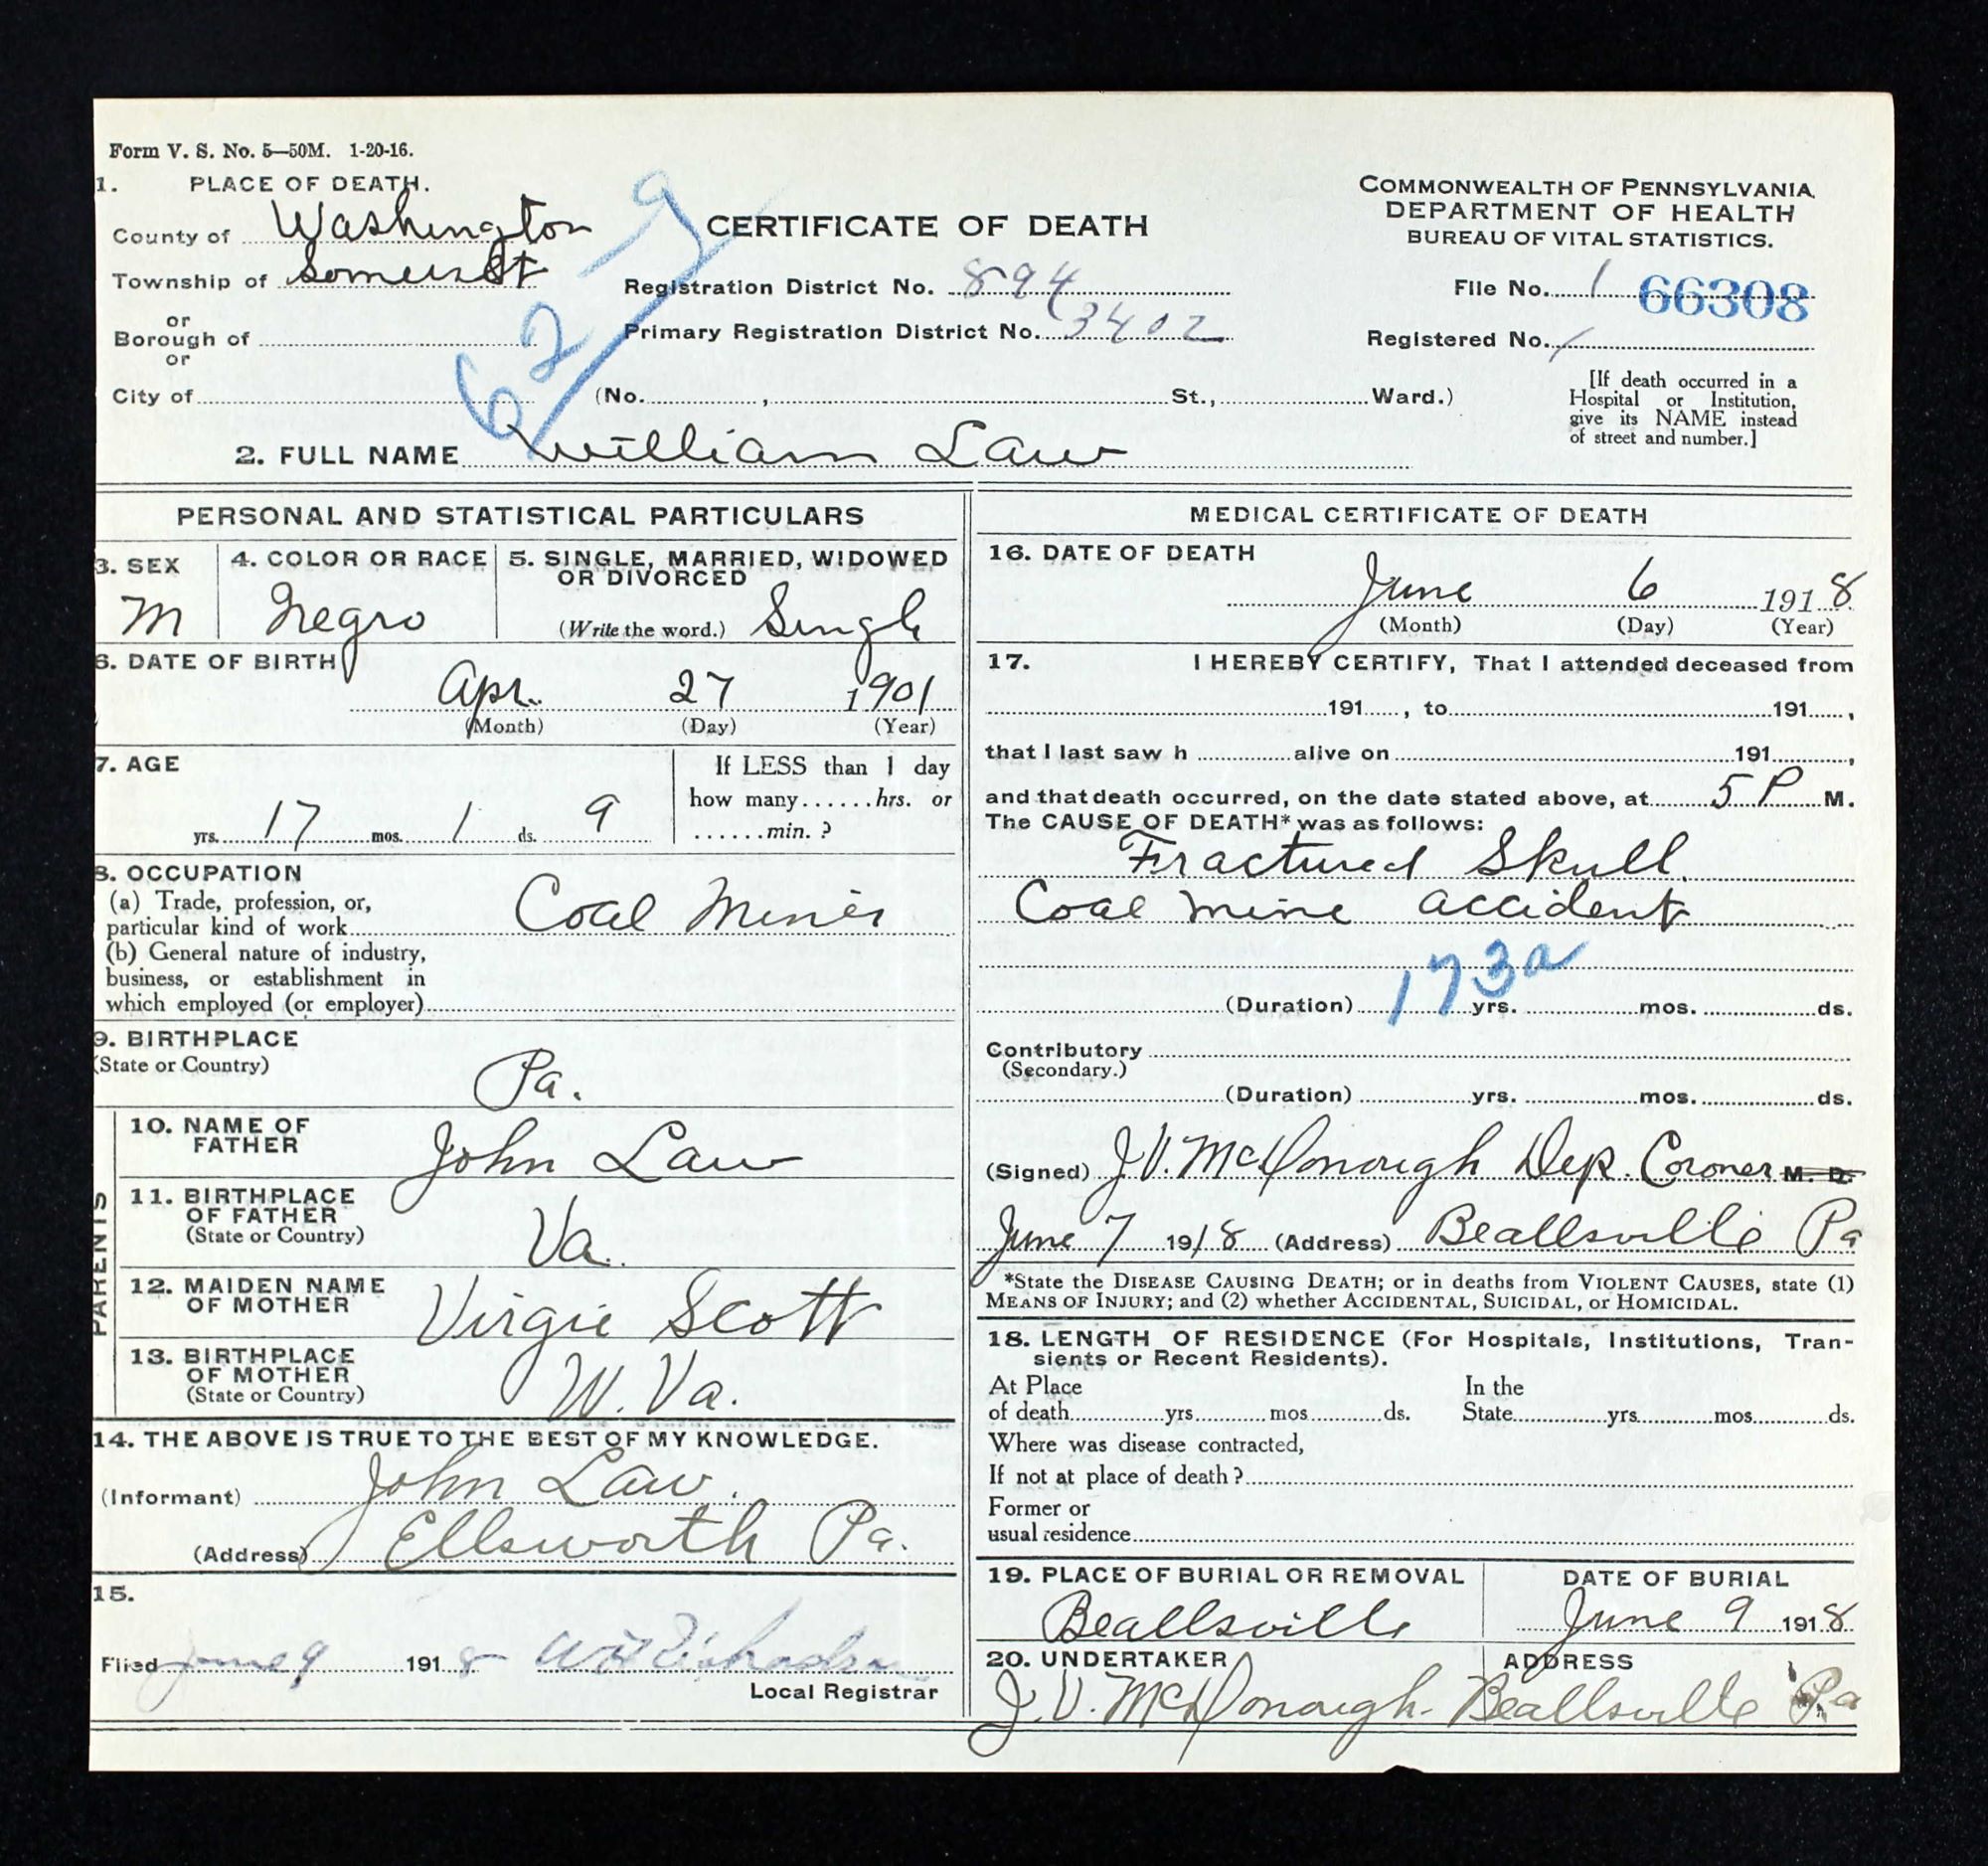 Form V. S. No. 5—50M. 1-20-16.
1. PLACE OF DEATH.
County of Washington
Township of Somerset
or
Borough of
or
City of
62-9
CERTIFICATE OF DEATH
Registration District No. 894
Primary Registration District No. 3402
(No. , St., Ward.)
COMMONWEALTH OF PENNSYLVANIA
DEPARTMENT OF HEALTH
BUREAU OF VITAL STATISTICS.
File No. 1 66308
Registered No. 1
[If death occurred in a
Hospital or Institution,
give its NAME instead
of street and number.]
2. FULL NAME William Law
PERSONAL AND STATISTICAL PARTICULARS
3. SEX
M
4. COLOR OR RACE
Negro
5. SINGLE, MARRIED, WIDOWED
OR DIVORCED
(Write the word.) Single
6. DATE OF BIRTH
Apr. 27 1901
(Month) (Day) (Year)
7. AGE
yrs. 17 mos. 1 ds. 9
If LESS than 1 day
how many......hrs. or
......min. ?
8. OCCUPATION
(a) Trade, profession, or,
particular kind of work Coal Miner
(b) General nature of industry,
business, or establishment in
which employed (or employer)
9. BIRTHPLACE
(State or Country)
Pa.
PARENTS
10. NAME OF
FATHER
John Law
11. BIRTHPLACE
OF FATHER
(State or Country)
Va.
12. MAIDEN NAME
OF MOTHER
Virgie Scott
13. BIRTHPLACE
OF MOTHER
(State or Country)
W. Va.
14. THE ABOVE IS TRUE TO THE BEST OF MY KNOWLEDGE.
(Informant) John Law.
(Address) Ellsworth Pa.
15.
Filed June 9 1918 W H Richardson
Local Registrar
MEDICAL CERTIFICATE OF DEATH
16. DATE OF DEATH
June 6 1918
(Month) (Day) (Year)
17. I HEREBY CERTIFY, That I attended deceased from
191 , to 191 ,
that I last saw h alive on 191 ,
and that death occurred, on the date stated above, at 5 P M.
The CAUSE OF DEATH* was as follows:
Fractured Skull.
Coal mine accident
173a
(Duration) yrs. mos. ds.
Contributory
(Secondary.)
(Duration) yrs. mos. ds.
(Signed) J.V. McDonough Dep. Coroner M. D.
June 7 1918 (Address) Beallsville Pa
*State the DISEASE CAUSING DEATH; or in deaths from VIOLENT CAUSES, state (1)
MEANS OF INJURY; and (2) whether ACCIDENTAL, SUICIDAL, or HOMICIDAL.
18. LENGTH OF RESIDENCE (For Hospitals, Institutions, Tran-
sients or Recent Residents).
At Place
of death yrs mos ds.
In the
State yrs mos ds.
Where was disease contracted,
If not at place of death ?
Former or
usual residence
19. PLACE OF BURIAL OR REMOVAL
Beallsville
DATE OF BURIAL
June 9 1918
20. UNDERTAKER
J. V. McDonough.
ADDRESS
Beallsville Pa